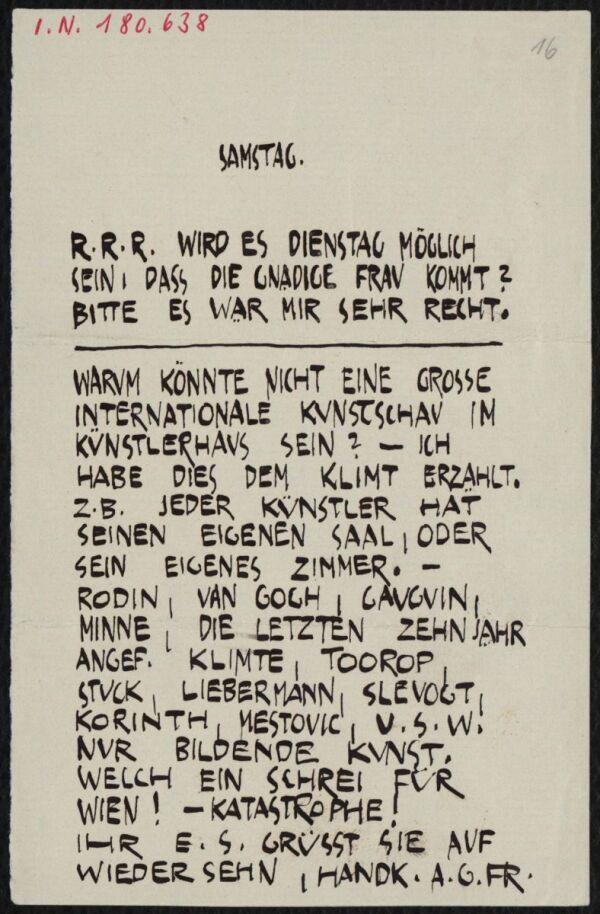 I.N. 180.638
16
SAMSTAG.
R.R.R. WIRD ES DIENSTAG MÖGLICH
SEIN, DASS DIE GNÄDIGE FRAV KOMMT?
BITTE ES WÄR MIR SEHR RECHT.
WARVM KÖNNTE NICHT EINE GROSSE
INTERNATIONALE KVNSTSCHAV IM
KÜNSTLERHAVS SEIN? – ICH
HABE DIES DEM KLIMT ERZÄHLT.
Z.B. JEDER KÜNSTLER HAT
SEINEN EIGENEN SAAL, ODER
SEIN EIGENES ZIMMER. –
RODIN, VAN GOGH, GAVGVIN,
MINNE, DIE LETZTEN ZEHN JAHR
ANGEF. KLIMTE, TOOROP,
STVCK, LIEBERMANN, SLEVOGT,
KORINTH, MESTOVIC, V.S.W.
NVR BILDENDE KVNST.
WELCH EIN SCHREI FÜR
WIEN! – KATASTROPHE!
IHR E.S. GRÜSST SIE AVF
WIEDERSEHN, HANDK. A.G.FR.